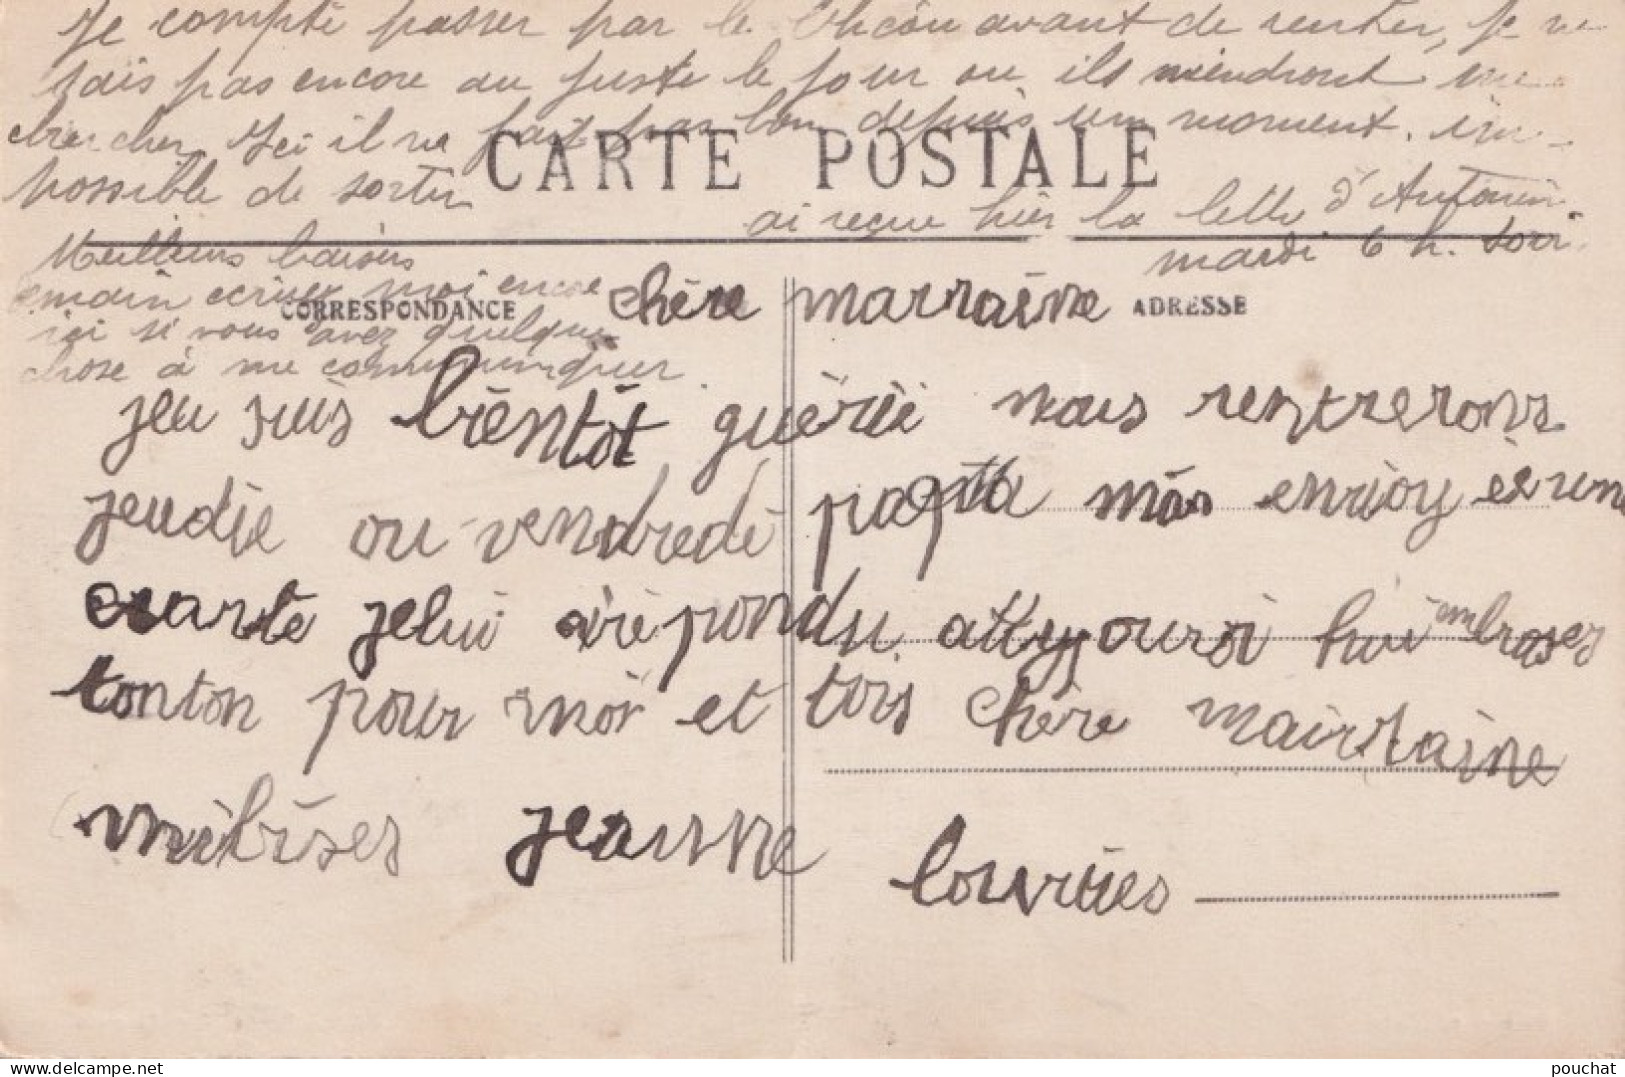 Je compte passer par le avant de rentrer, je ne
sais pas encore au juste le jour ou ils viendront me
chercher. Ici il ne fait pas bon depuis un moment. im-
possible de sortir
CARTE POSTALE
ai reçue hier la lettre d'Antonin
mardi 6 h. soir.
Meilleurs baisers
emain ecrivez moi encore
ici si vous avez quelque
chose à me communiquer.
CORRESPONDANCE
ADRESSE
chère marraine
jeu suis bientôt guèrie nous rentrerons
jeudie ou vendredi papa mas envoy er une
carte jelui répondu attyouroi hui embrases
tonton pour moi et tois chère mairraine
milbises jeanne
louvriies
www.delcampe.net
pouchat